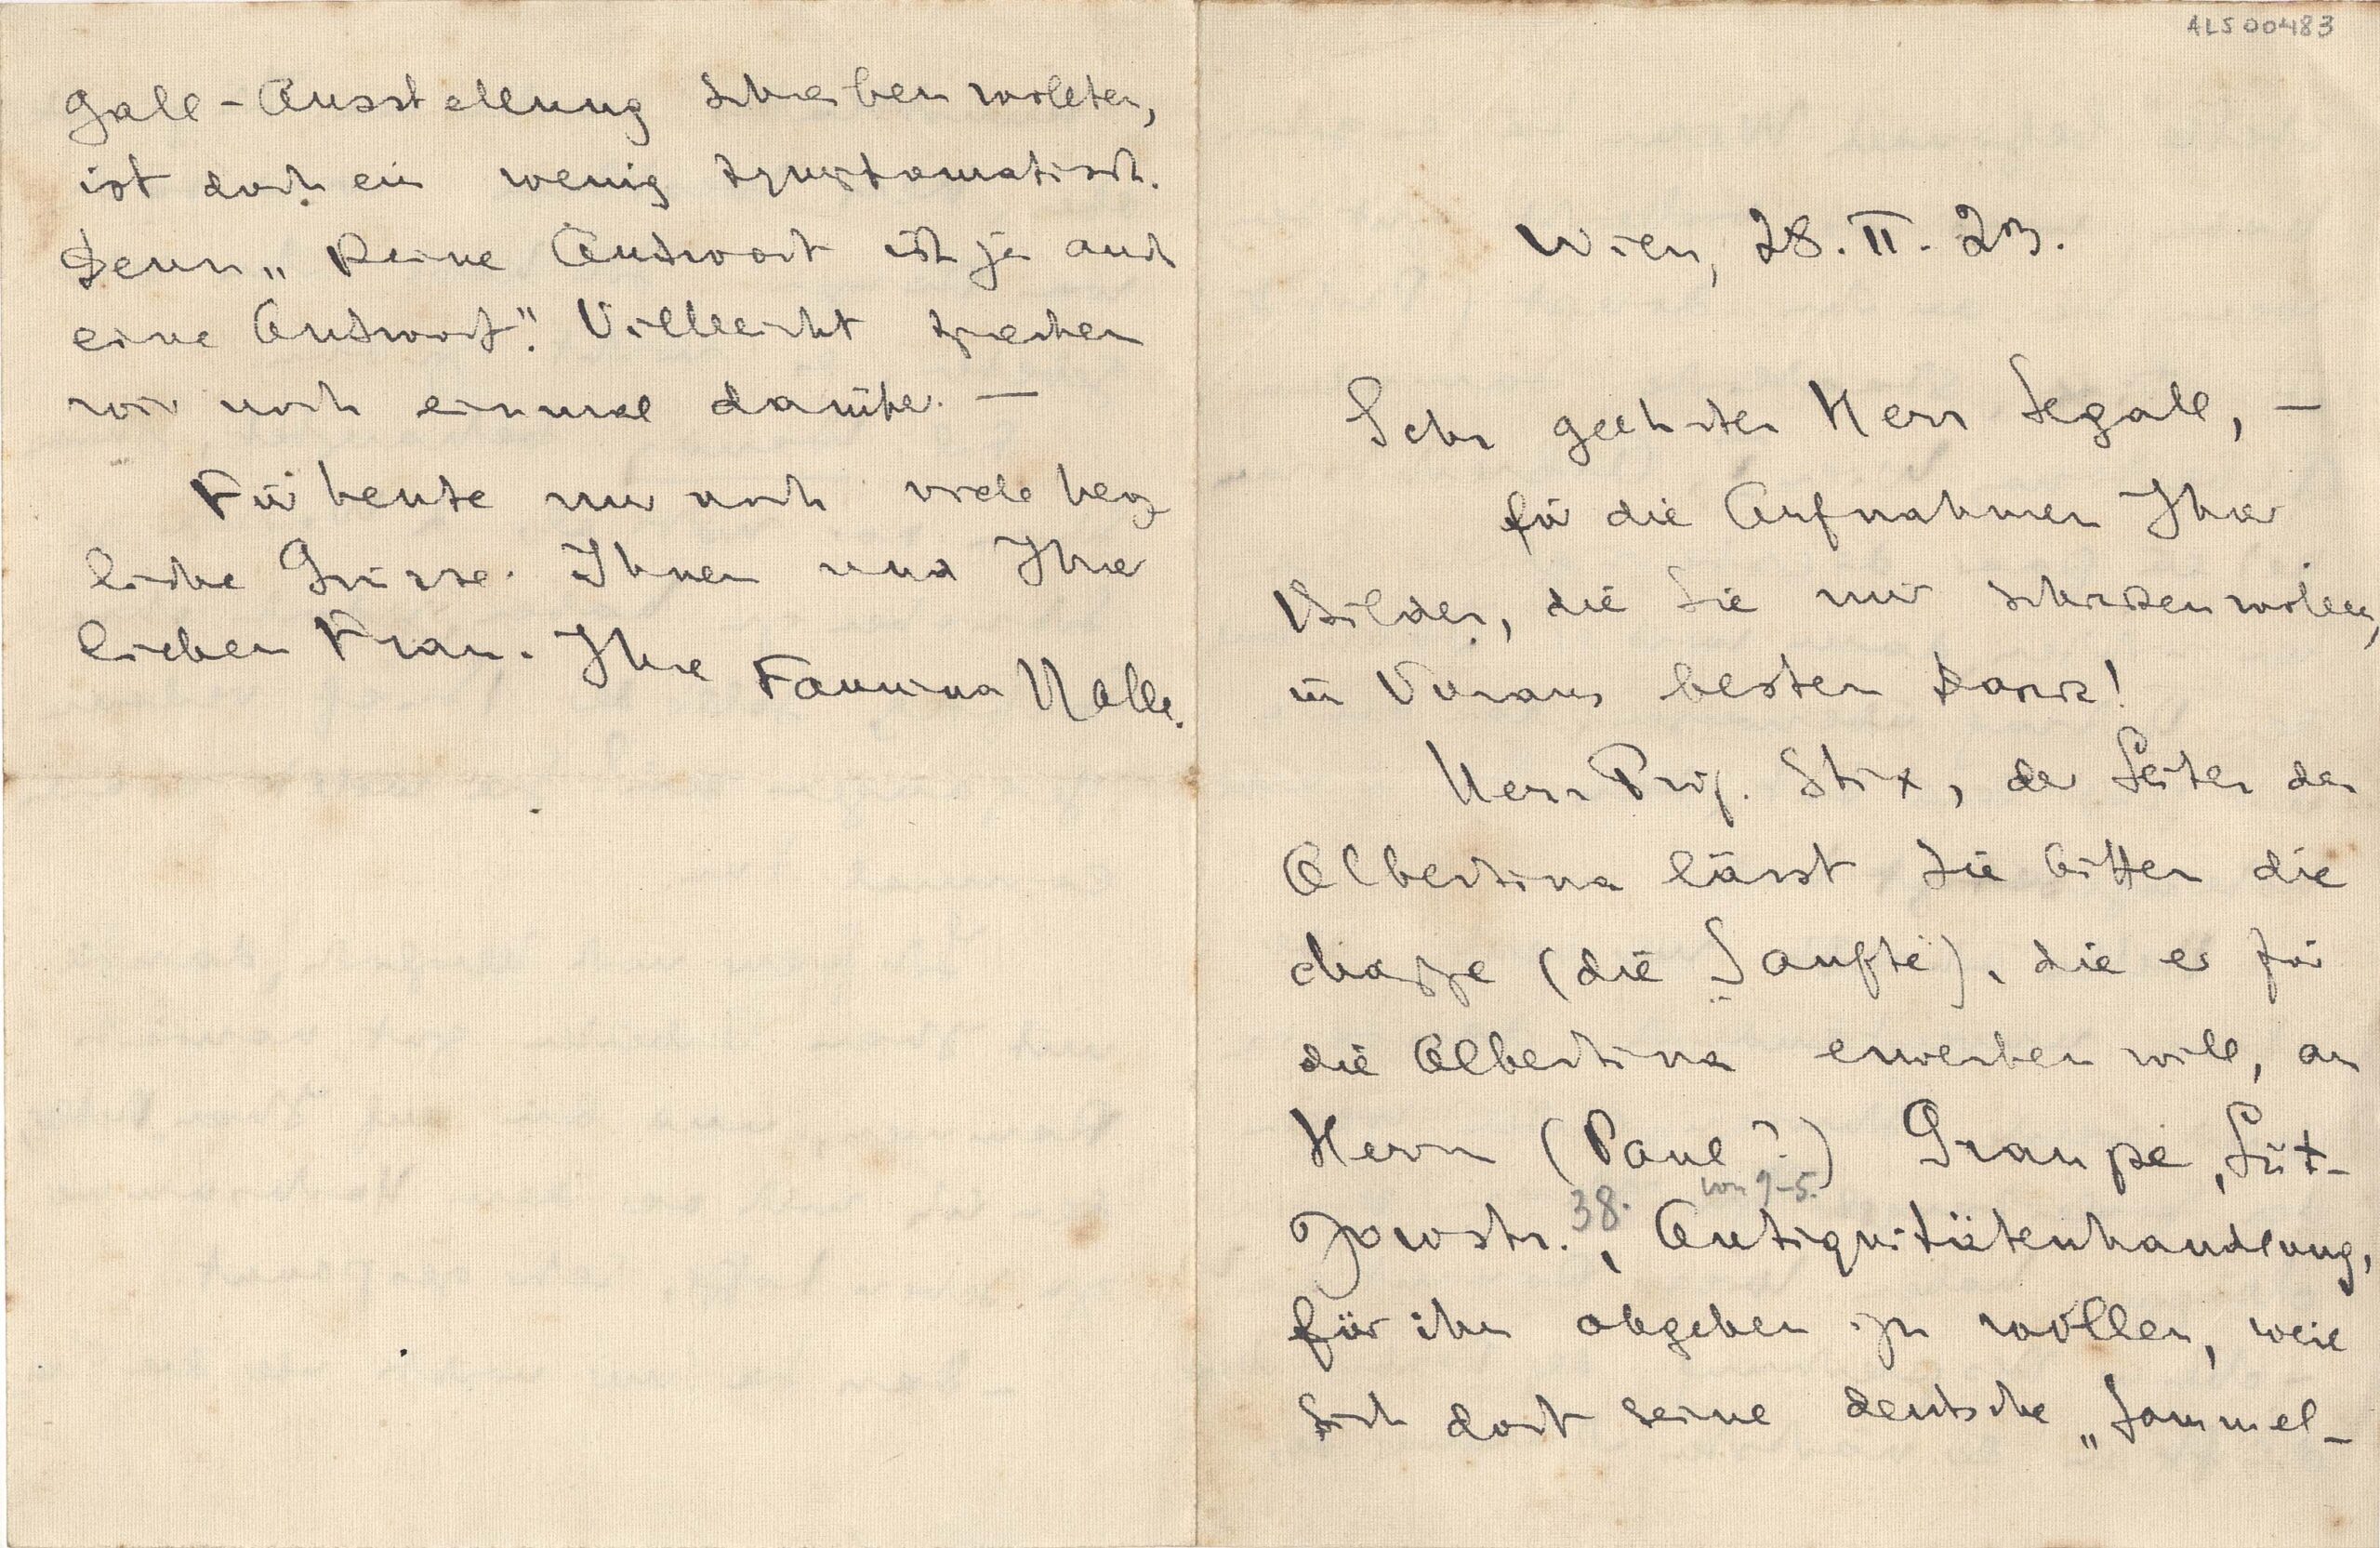 ALS 00483
Wien, 28. II. 23.
Sehr geehrter Herr Segall, —
für die Aufnahmen Ihrer
Bilder, die Sie mir schicken wollen,
im Voraus besten Dank!
Herr Prof. Stix, der Leiter der
Albertina lässt Sie bitten die
Mappe (die Sanfte), die er für
die Albertina erwerben will, an
Herrn (Paul?) Graupe, Lüt-
von 9-5.
zowstr. 38., Antiquitätenhandlung,
für ihn abgeben zu wollen, weil
sich dort seine deutsche „Sammel-
gall-Ausstellung schreiben wollten,
ist doch ein wenig symptomatisch.
Denn „keine Antwort ist ja auch
eine Antwort". Vielleicht sprechen
wir noch einmal darüber. —
Für heute nur noch viele herz
liche Grüsse Ihnen und Ihrer
lieben Frau. Ihre Fannina Halle.